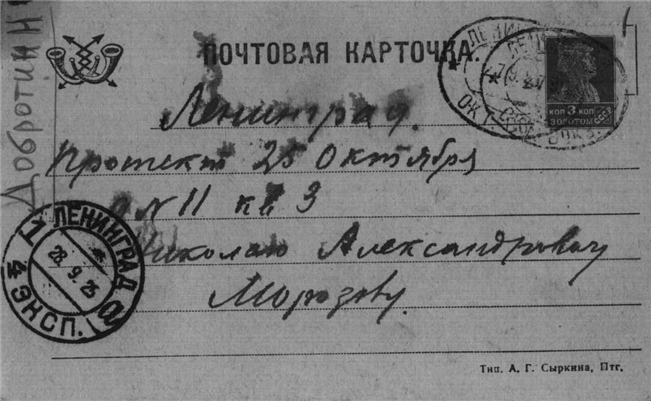 Добротин Н
ПОЧТОВАЯ КАРТОЧКА.
КОП 3 КОП
ЗОЛОТОМ
Ленинград.
Проспект 25 Октября
д N 11 кв 3
Николаю Александровичу
Морозову.
ЛЕНИНГРАД
1
28.9.25
4 ЭКСП.
Тип. А. Г. Сыркина, Птг.